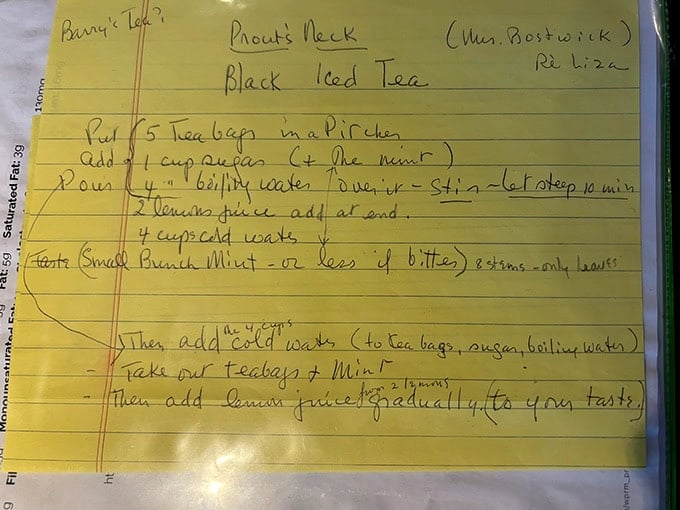 Barry's Tea?
Prout's Neck
(Mrs. Bostwick)
Re Liza
Black Iced Tea
Put 5 Tea bags in a Pitcher
add 1 cup sugar (+ the mint)
Pour 4 " boiling water over it - Stir - let steep 10 min
2 lemons juice add at end.
4 cups cold water
Taste (Small Bunch Mint - or less if bitter) 8 stems - only leaves
Then add the 4 cups cold water (to tea bags, sugar, boiling water)
- Take out teabags + Mint
- Then add lemon juice from 2 lemons gradually. (to your taste.)
Saturated Fat: 3g
Fat: 5g
Monounsaturated Fat:
130mg
ht
/wprm_pr